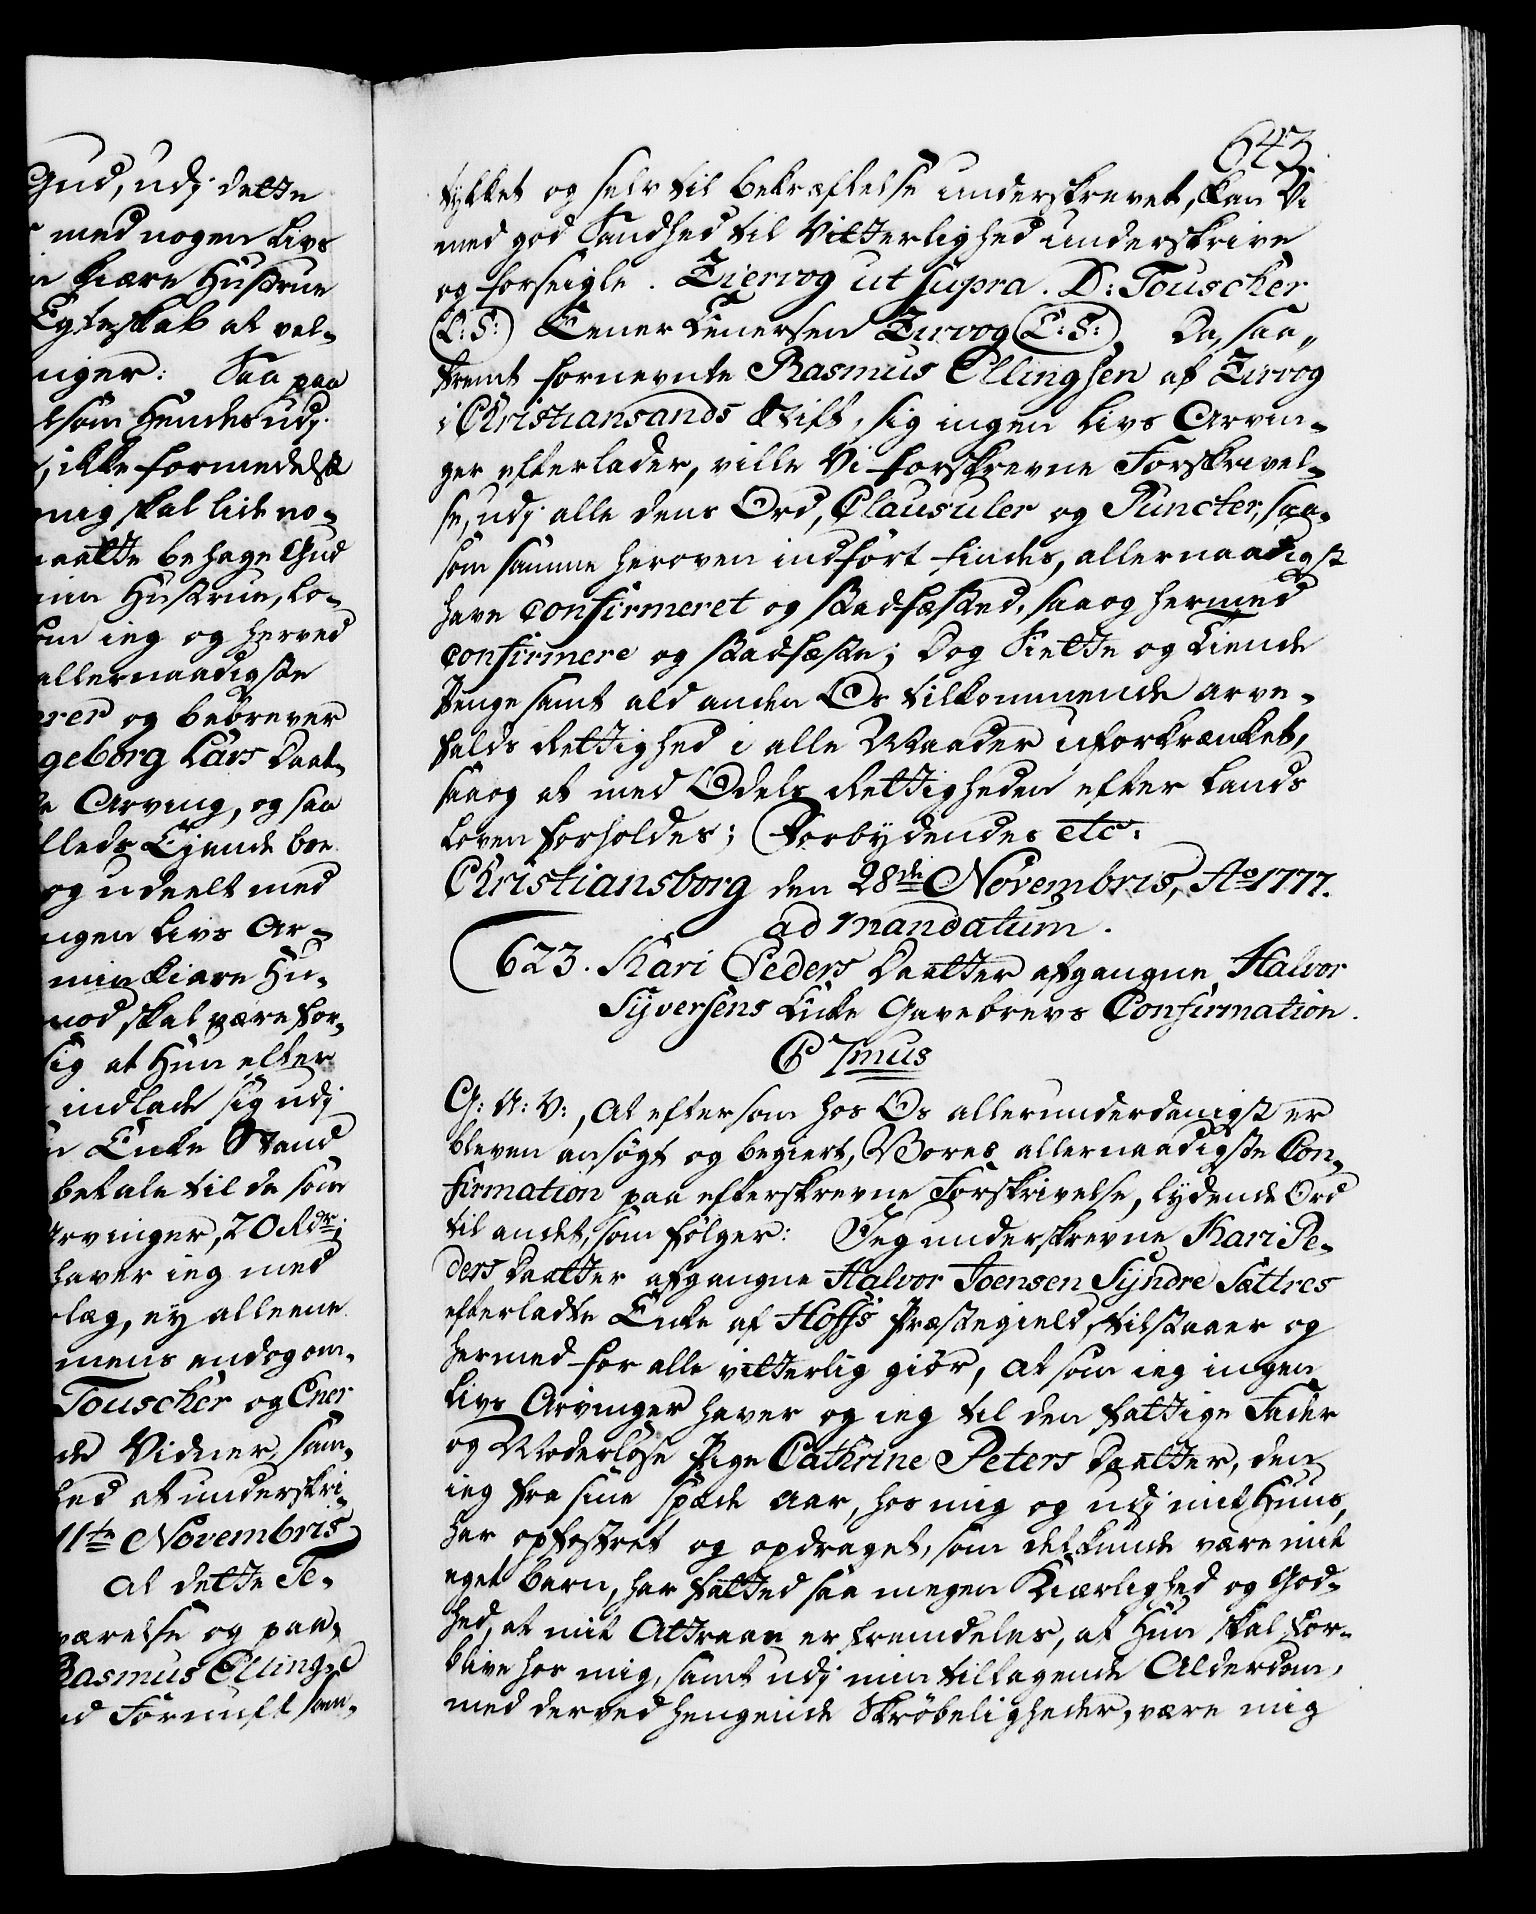 Gud, udj dette
med nogen Livs
kiære Hustrue
Egteskab at vel-
nger: Saa paa
som Hendes udj
, ikke formedelst
mig skal lide no-
maatte behage Gud
min Hustrue, Lo-
som ieg og herved
allernaadigste
rer og bebrever
geborg Lars Daat-
Arving, og saa
lleds Ejende boe
og udeelt med
ngen Livs Ar-
min kiære Hu-
mod skal være for-
sig at Hun efter
indlade sig udj
n Enke Stand
betale til de som
Arvinger, 20 Rdr;
haver ieg med
læg, ey alleene
mens endog om-
Touscher og Ener
de Vidner, sam-
hed at underskri-
11te Novembris
At dette Te-
værelse og paa-
Rasmus Ellings-
d Fornuft sam-
643
tykket og selv til bekræftelse underskrevet, kan Vi
med god Sandhed til Vitterlighed underskrive
og forseigle. Ziervog ut supra. D: Touscher
(L:S:) Eener Eenersen Zirvog (L:S:), Da, saa-
fremt fornevnte Rasmus Ellingsen af Zirvog
i Christiansands Stift, sig ingen Livs Arvin-
ger efterlader, ville Vi forskrevne Forskrivel-
se, udj alle dens Ord, Clausuler og Puncter, saa-
som samme heroven indført findes, allernaadigst
have confirmeret og stadfæsted, saa og hermed
confirmere og stadfæste; Dog Siette og Tiende
Penge samt ald anden Os tilkommende arve-
falds Rettighed i alle Maader uforkrænket,
saa og at med Odels Rettigheden efter Lands
Loven forholdes; Forbydendes etc:
Christiansborg den 28de Novembris, Ao 1777.
ad mandatum.
623. Kari Peders Daatter afgangne Halvor
Syversens Enke Gavebrevs Confirmation.
C 7mus
G: A: V:, At eftersom hos Os allerunderdanigst er
bleven ansøgt og begiert, Vores allernaadigste Con-
firmation paa efterskrevne Forskrivelse, lydende Ord
til andet, som følger: Jeg underskrevne Kari Pe-
ders Daatter afgangne Halvor Joensen Syndre Sættres
efterladte Enke af Hoffs Præstegield, tilstaaer og
hermed for alle vitterlig giør, at som ieg ingen
Livs Arvinger haver og ieg til den fattige Fader
og Moderløse Pige Cathrine Peters Daatter, den
ieg fra sine spæde Aar, hos mig og udj mit Huus,
har opfostret og opdraget, som det kunde være mit
eget Barn, har fatted saa megen Kiærlighed og God-
hed, at mit Attraae er fremdeles, at Hun skal for-
blive hos mig, samt udj min tiltagende Alderdom,
med derved hengende Skrøbeligheder, være mig